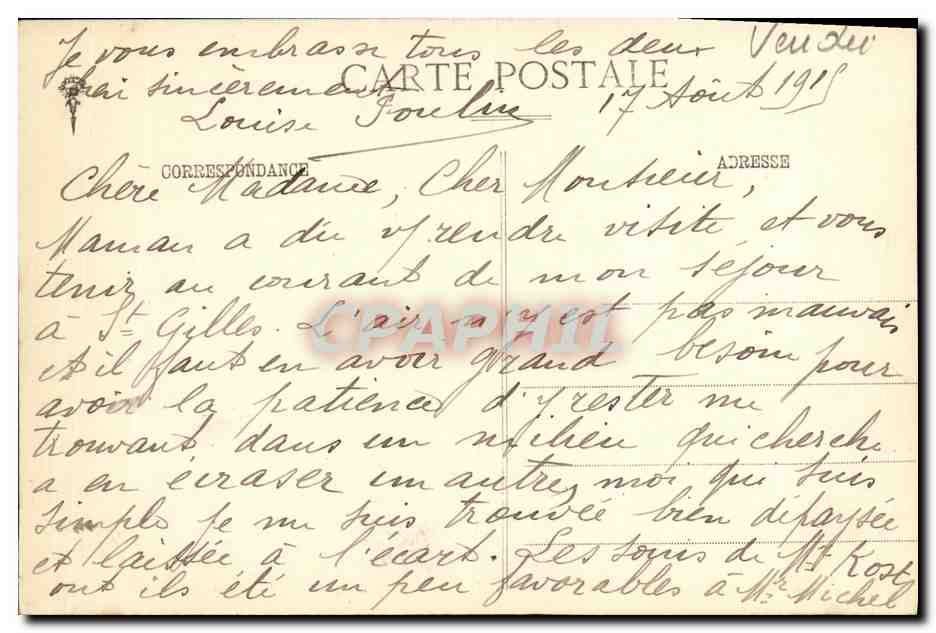 Je vous embrasse tous les deux Vendu
bien sincèrement CARTE POSTALE
Louise 17 Août 1915
CORRESPONDANCE ADRESSE
Chère Madame, Cher Monsieur,
Maman a du vs rendre visite et vous
tenir au courant de mon séjour
à St Gilles. L'air n'y est pas mauvais
CPAPHIL
et il faut en avoir grand besoin pour
avoir la patience d'y rester me
trouvant dans un milieu qui cherche
a en écraser un autre, moi qui suis
simple je me suis trouvée bien dépaysée
et laissée à l'écart. Les soins de Mr Kost
ont ils été un peu favorables à Mr Michel